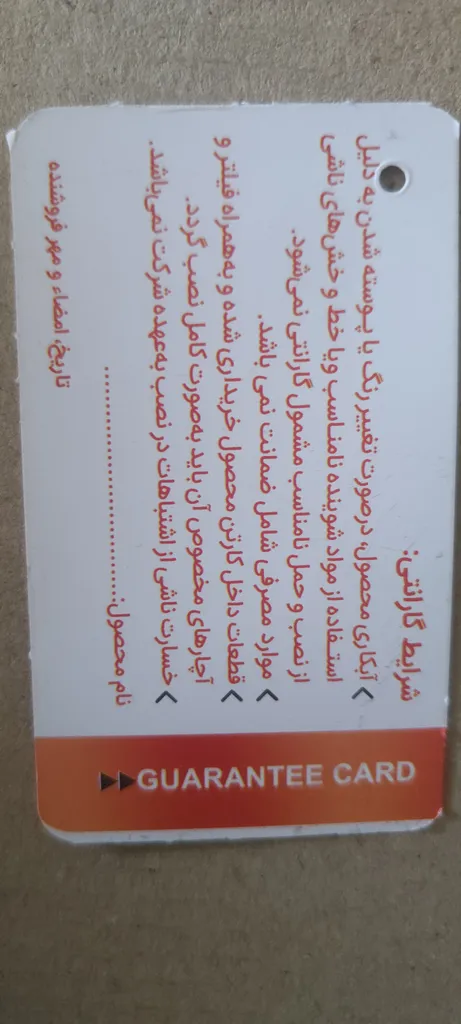 شرایط گارانتی:
> آبکاری محصول، درصورت تغییر رنگ یا پوسته شدن به دلیل
استفاده از مواد شوینده نامناسب ویا خط و خش‌های ناشی
از نصب و حمل نامناسب مشمول گارانتی نمی‌شود.
> موارد مصرفی شامل ضمانت نمی باشد.
> قطعات داخل کارتن محصول خریداری شده و به‌همراه فیلتر و
آچارهای مخصوص آن باید به‌صورت کامل نصب گردد.
> خسارت ناشی از اشتباهات در نصب به‌عهده شرکت نمی‌باشد.
نام محصول:............................
تاریخ، امضاء و مهر فروشنده
GUARANTEE CARD